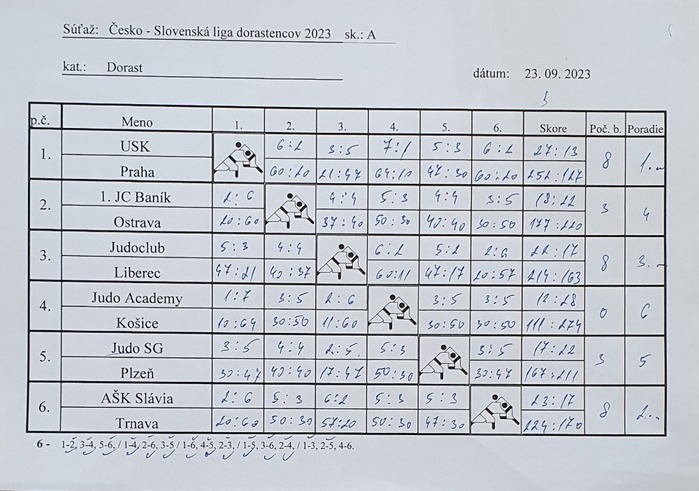 Súťaž: Česko - Slovenská liga dorastencov 2023 sk.: A
kat.: Dorast
dátum: 23. 09. 2023
p.č. Meno 1. 2. 3. 4. 5. 6. Skore Poč. b. Poradie
1. USK 6:2 3:5 7:1 5:3 6:2 27:13 8 1.
Praha 60:20 21:47 64:10 47:30 60:20 252:127
2. 1. JC Baník 2:6 4:4 5:3 4:4 3:5 18:22 3 4
Ostrava 20:60 37:40 50:30 40:40 30:50 177:220
3. Judoclub 5:3 4:4 6:2 5:2 2:6 22:17 8 3.
Liberec 47:21 40:37 60:11 47:17 20:57 214:163
4. Judo Academy 1:7 3:5 2:6 3:5 3:5 12:28 0 6
Košice 10:64 30:50 11:60 30:50 30:50 111:274
5. Judo SG 3:5 4:4 2:5 5:3 3:5 17:22 3 5
Plzeň 30:47 40:40 17:47 50:30 30:47 167:211
6. AŠK Slávia 2:6 5:3 6:2 5:3 5:3 23:17 8 2.
Trnava 20:60 50:30 57:20 50:30 47:30 224:170
6 - 1-2, 3-4, 5-6, / 1-4, 2-6, 3-5 / 1-6, 4-5, 2-3, / 1-5, 3-6, 2-4, / 1-3, 2-5, 4-6.